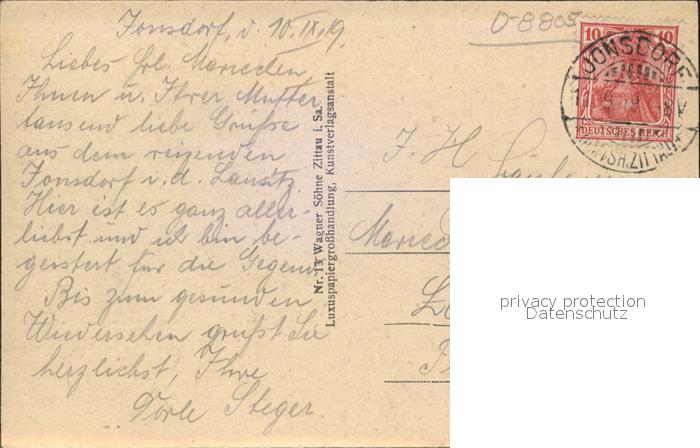 Jonsdorf, d. 10.IX.19.
Liebes Frl. Mariechen,
Ihnen u. Ihrer Mutter
tausend liebe Grüße
aus dem reizenden
Jonsdorf i. d. Lausitz.
Hier ist es ganz aller-
liebst und ich bin be-
geistert für die Gegend
Bis zum gesunden
Wiedersehen grüßt Sie
herzlichst, Ihre
Dorle Steger.
Nr. 13 Wagner Söhne Zittau i. Sa.
Luxuspapiergroßhandlung, Kunstverlagsanstalt
0-8805
10 10
DEUTSCHES REICH
JONSDORF
F. H.
Mariech
privacy protection
Datenschutz